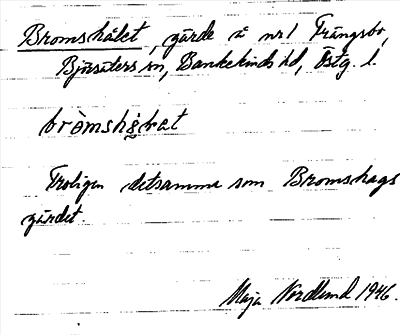 Bromshålet, gärde å nr 1 Trångsbo,
Björsäters sn, Bankekinds hd, Östg. l.
Troligen detsamma som Bromshags
gärdet.
Maja Nordlund 1946.